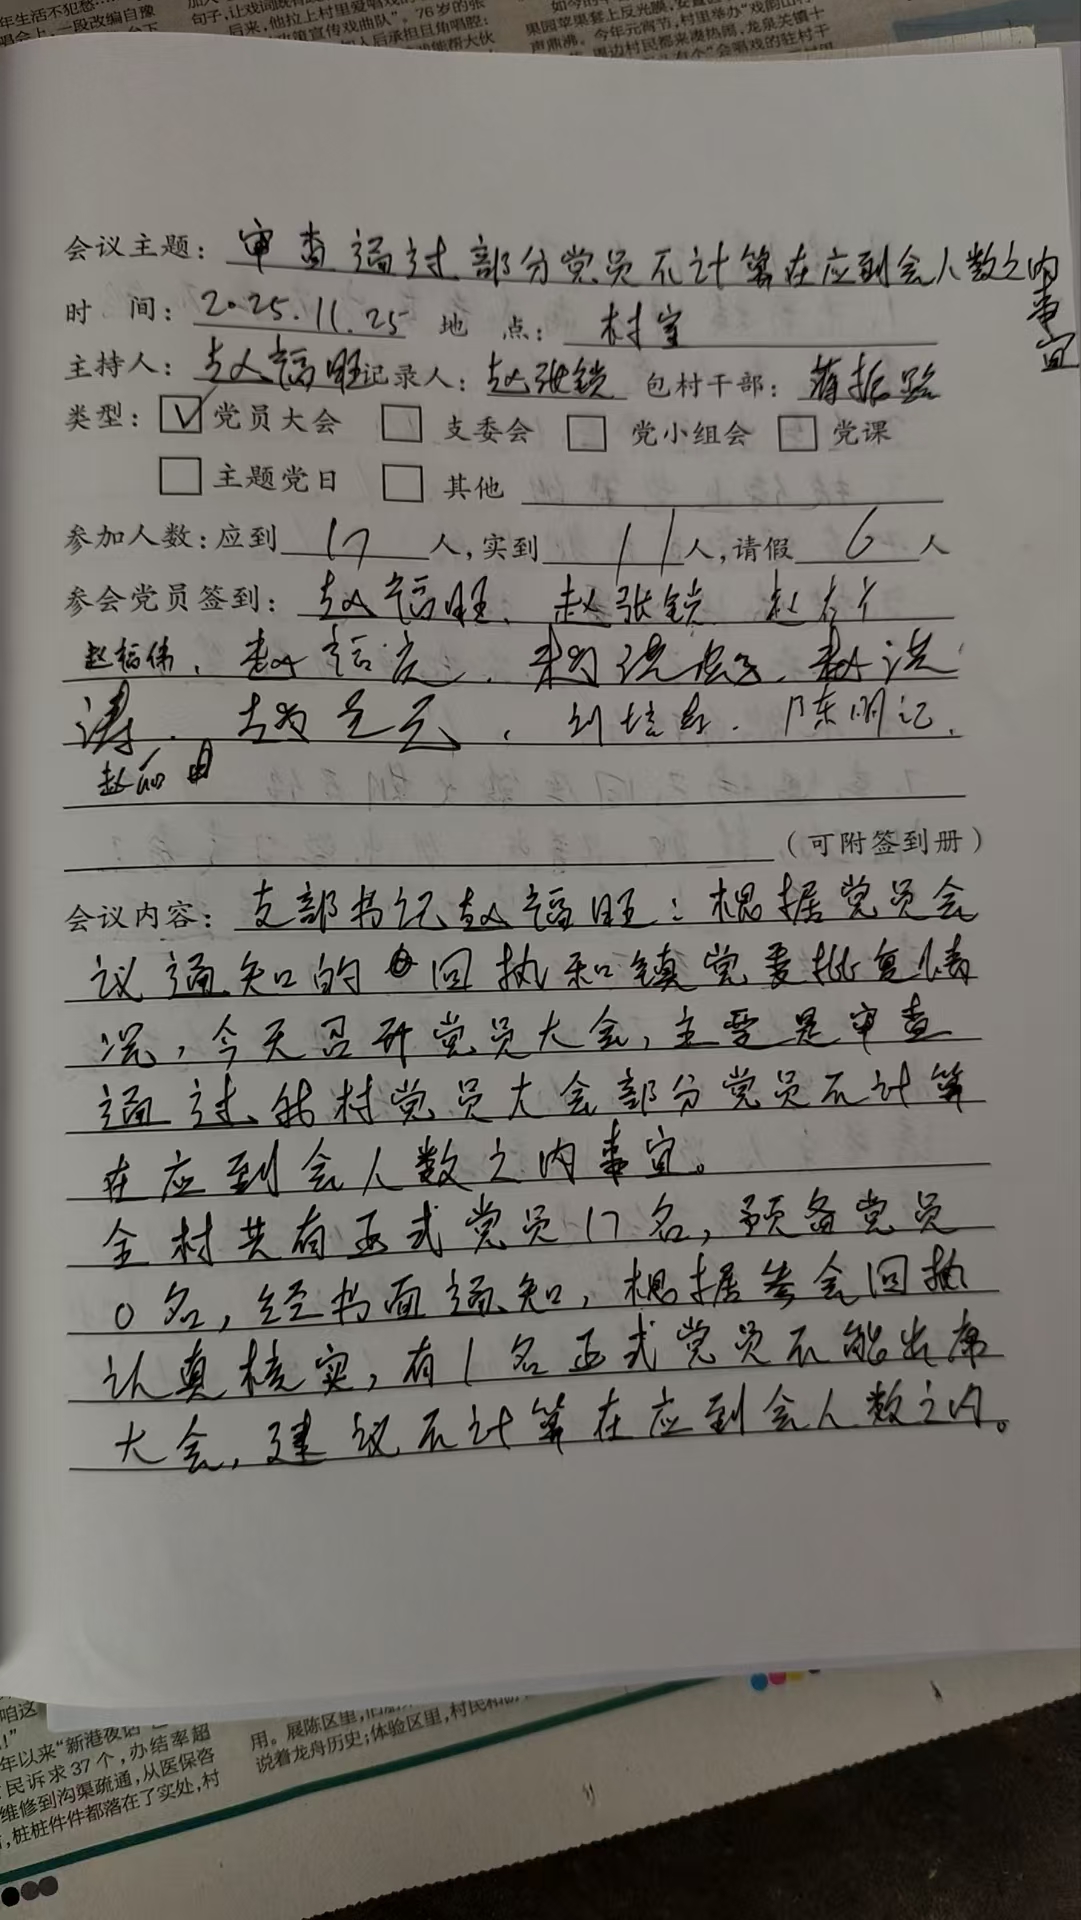 年生活不犯愁……一段改编自豫
句子,让戏词既有
后来,他拉上村里爱唱戏的
宣传戏曲队"。76岁的张
人后承担丑角唱腔:
果园苹果套上反光膜,
声鼎沸。今年元宵节,村里举办"戏韵山村
周边村民都来凑热闹,龙泉关镇十
有个"会唱戏的驻村干
会议主题:审查通过部分党员不计算在应到会人数之内事宜
时 间:2025.11.25 地 点:村室
主持人:赵福旺 记录人:赵张锁 包村干部:蒋振
类型:☑党员大会 □支委会 □党小组会 □党课
□主题党日 □其他
参加人数:应到17人,实到11人,请假6人
参会党员签到:赵福旺、赵张锁
赵福伟、赵福
涛. 陈明记.
赵
(可附签到册)
会议内容:支部书记赵福旺:根据党员会
议通知的回执和镇党委批复情
况,今天召开党员大会,主要是审查
通过我村党员大会部分党员不计算
在应到会人数之内事宜。
全村共有正式党员17名,预备党员
0名,经书面通知,根据参会回执
认真核实,有1名正式党员不能出席
大会,建议不计算在应到会人数之内。
咱这
年以来"新港夜话
民诉求37个,办结率超
维修到沟渠疏通,从医保咨
,桩桩件件都落在了实处,村
用。展陈区里,
说着龙舟历史;体验区里,村民和